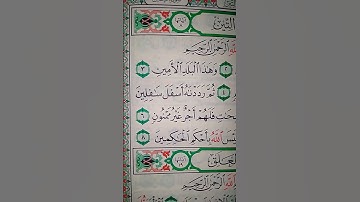 التين
الله الرحمن الرحيم
٢ وَهَٰذَا ٱلْبَلَدِ ٱلْأَمِينِ ٣
٤ ثُمَّ رَدَدْنَٰهُ أَسْفَلَ سَٰفِلِينَ
فَلَهُمْ أَجْرٌ غَيْرُ مَمْنُونٍ ٦
ٱللَّهُ بِأَحْكَمِ ٱلْحَٰكِمِينَ ٨
العلق
الله الرحمن الرحيم